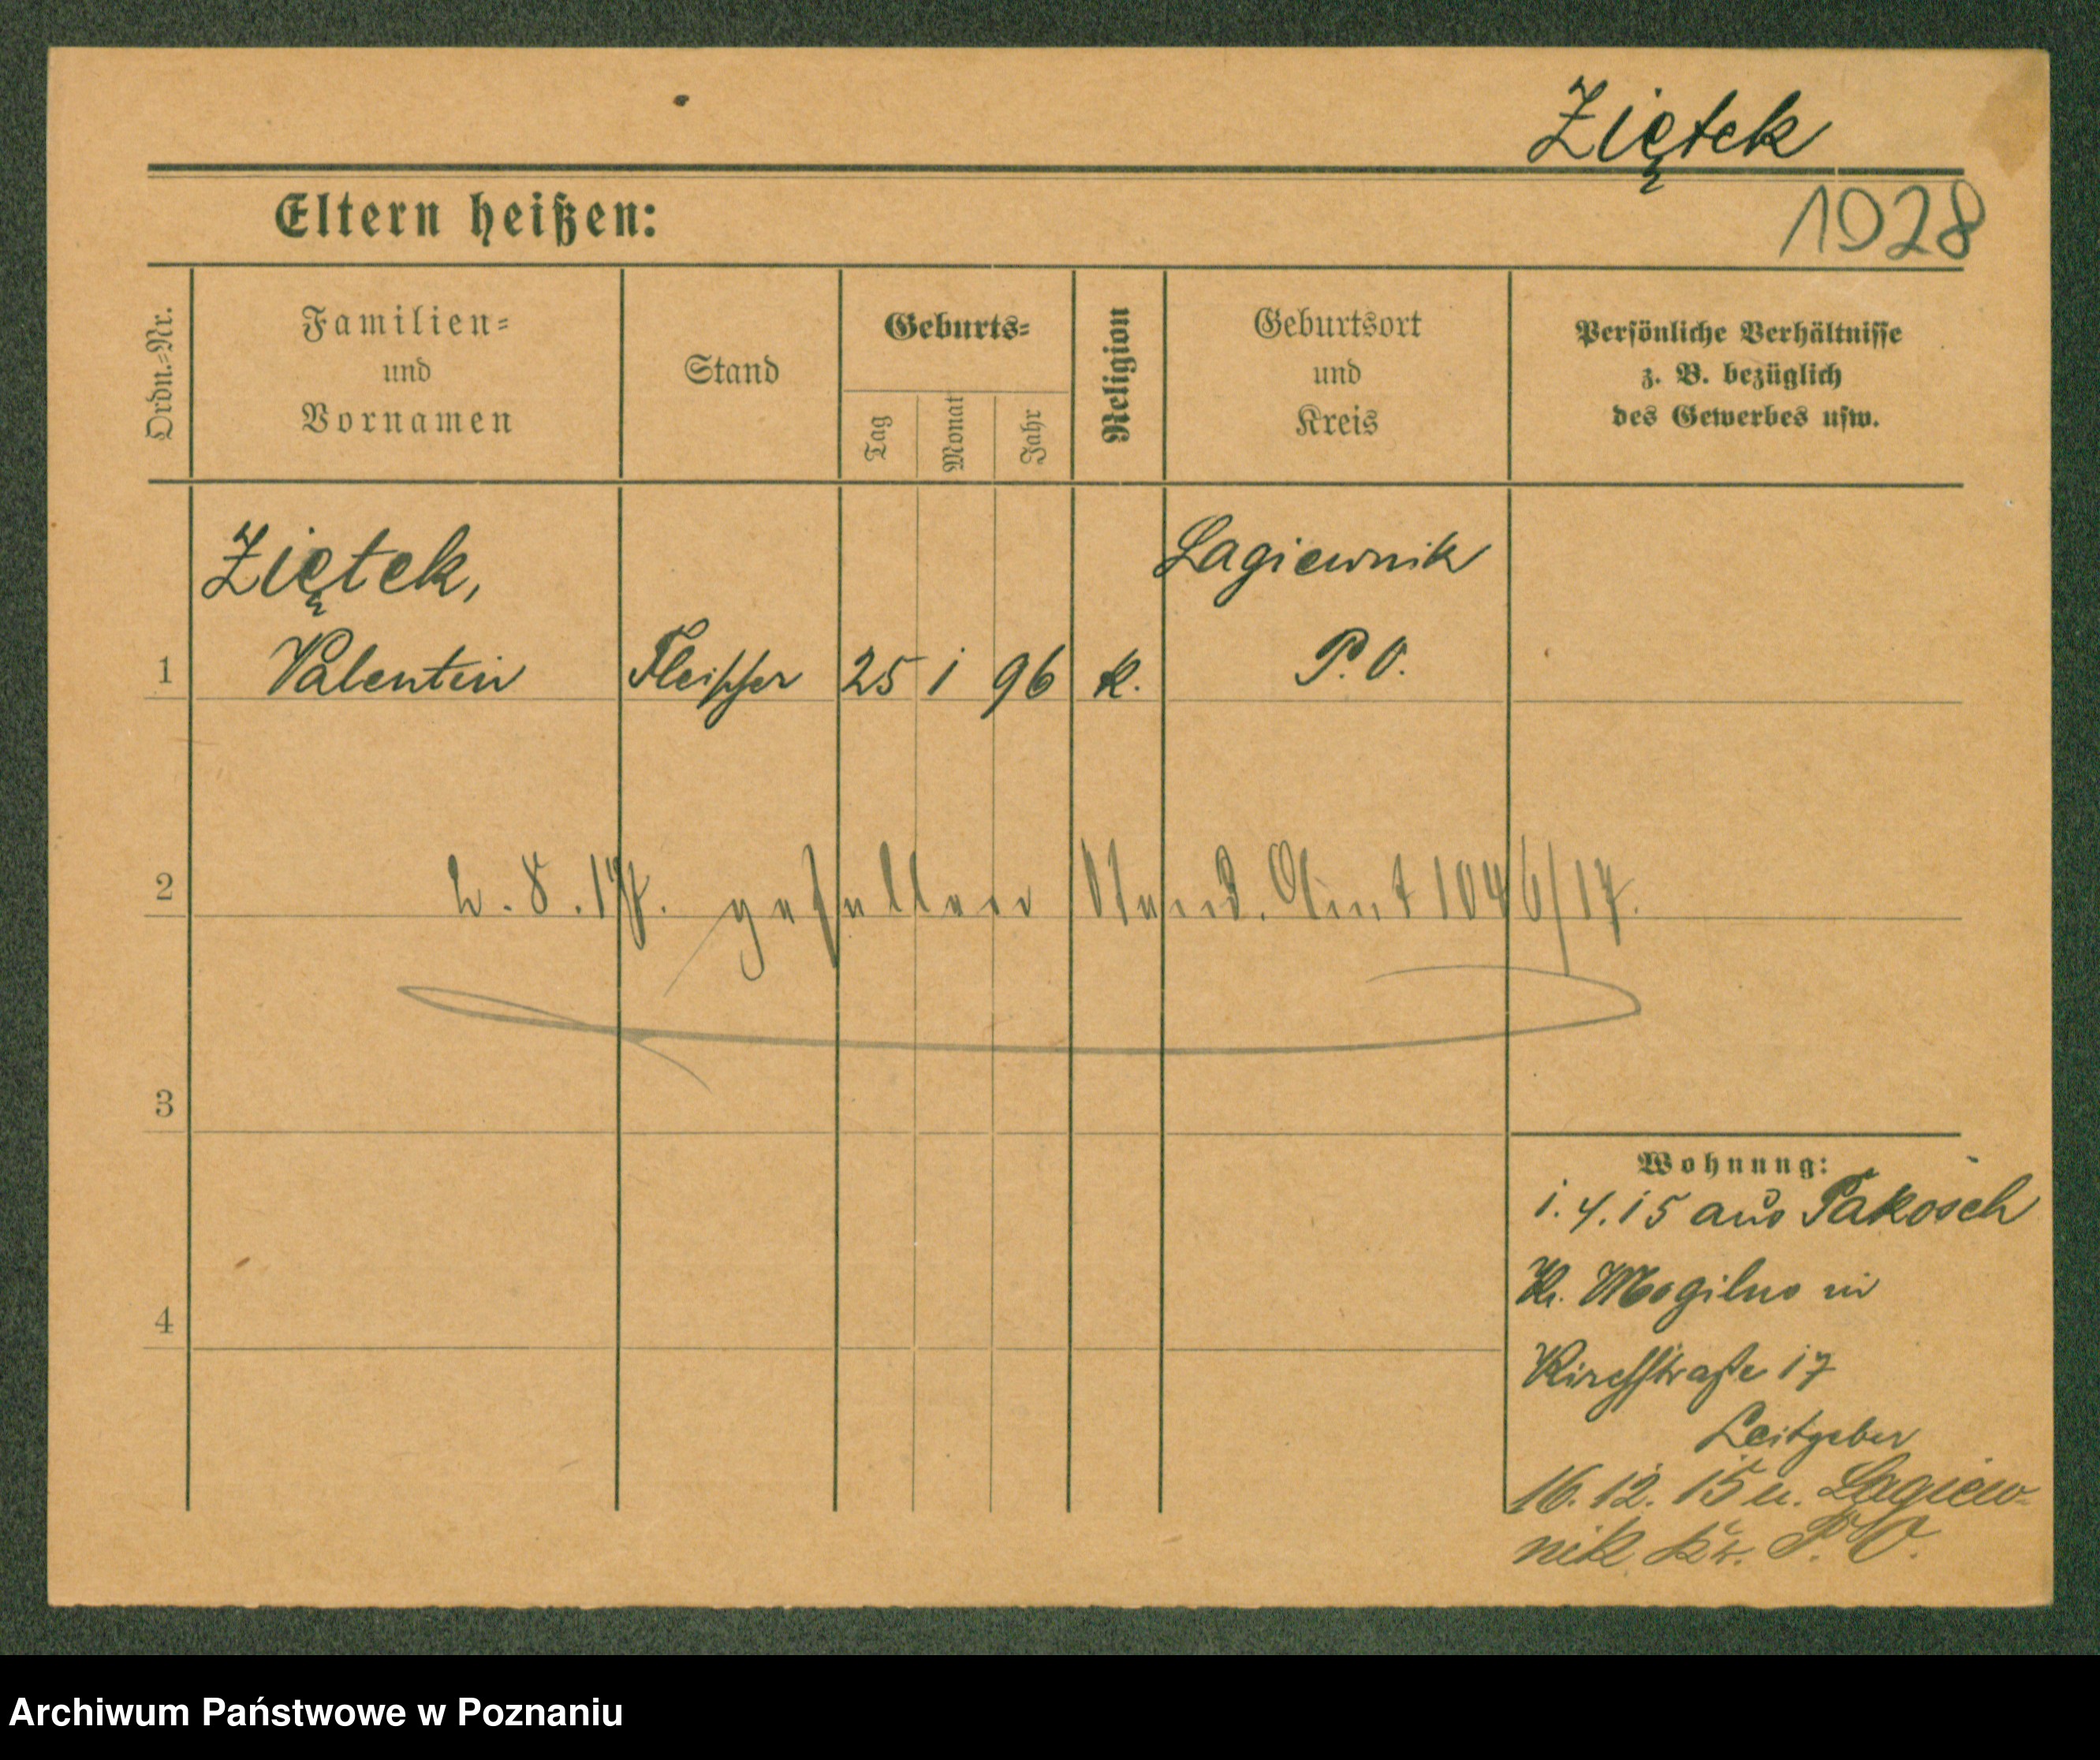 Ziętek
1928
Eltern heißen:
Ordn.=Nr.
Familien=
und
Vornamen
Stand
Geburts=
Tag
Monat
Jahr
Religion
Geburtsort
und
Kreis
Persönliche Verhältnisse
z. B. bezüglich
des Gewerbes usw.
Ziętek,
Lagiewnik
1 Valentin Fleischer 25 1 96 k. P.O.
2 2.8.17. gefallen Stand. Amt 1046/17.
3
Wohnung:
1.4.15 aus Pakosch
Kr. Mogilno in
4
Kirchstraße 17
Leitgeber
16.12.15 n. Lagiew-
nik Kr. P.O.
Archiwum Państwowe w Poznaniu